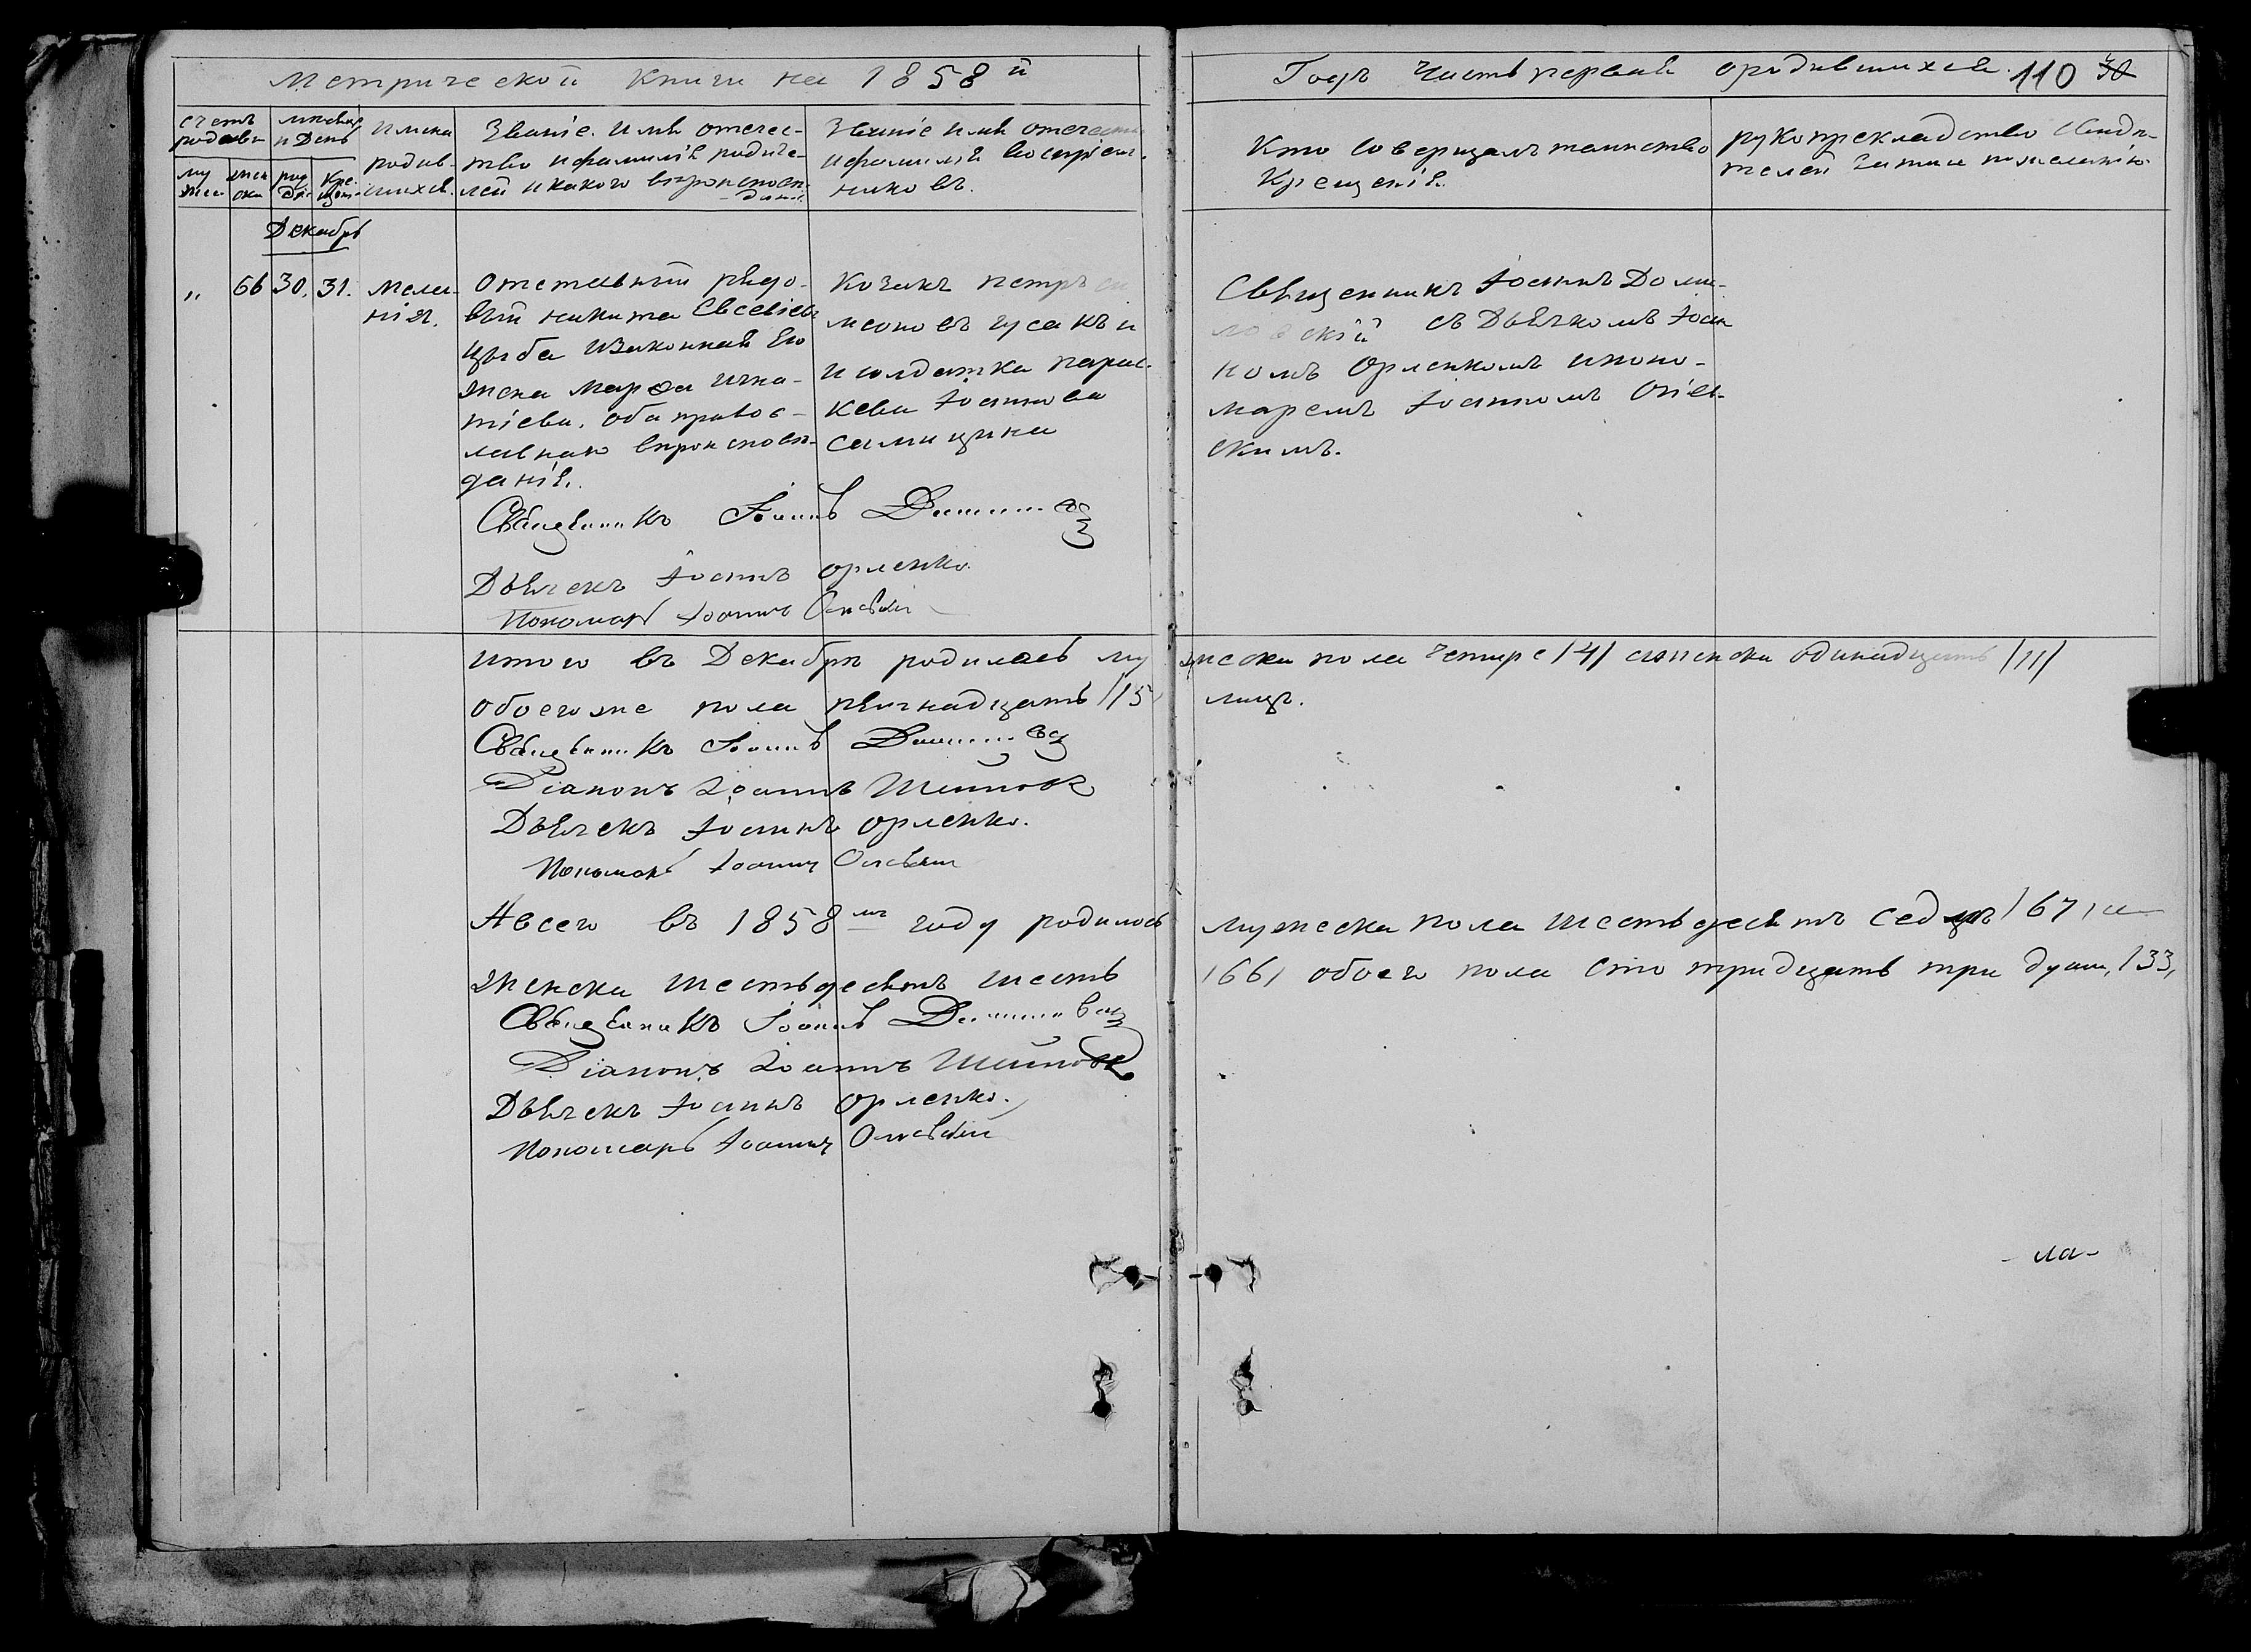 Метрической Книги на 1858й
Годъ Часть первая о родившихся. 110 30
счетъ родивш
мѣсяцъ и День
Имена родив-шихся.
Званіе. Имя отечес-
тво и фамилія родите-
лей и какого вѣроисповѣ-
данія.
Званіе Имя отечество
и фамилія Воспріем-
никовъ.
Кто Совершалъ таинство
Крещенія.
рукоприкладство Свидѣ-
телей записи по желанію
му
жен
род
Кре
жес
ски
Декабрь
" 66 30. 31. Мела-
нія.
Отставный рядо-
вый никита Евсевіевъ
Цыба и Законная Его
жена Марѳа Игна-
тіева. оба правос-
лавнаго вѣроисповѣ-
данія.
Козакъ петръ си
меоновъ гусакъ и
и солдатка парас-
кева Іоаннова
Свяшенникъ Іоаннъ Доли-
скій съ Дьячкомъ Іоан
номъ Орленкомъ и поно-
маремъ Іоанномъ
скимъ.
Священникъ Іоаннъ
Дьячекъ Іоаннъ орленко.
Пономарь Іоаннъ
итого въ Декабрѣ родилось му жеска пола четыре /4/ женска одинадцать /11/
обоего же пола пятнадцать /15/ лицъ.
Священникъ Іоаннъ
Діаконъ Іоаннъ
Дьячекъ Іоаннъ орленко.
Пономарь Іоаннъ
А всего въ 1858мъ году родилось мужеска пола шестьдесятъ седмъ /67/ и
женска шестьдесятъ шесть /66/ обоего пола сто тридцать три душ, 133,
Священникъ Іоаннъ
Діаконъ Іоаннъ
Дьячекъ Іоаннъ орленко.
Пономарь Іоаннъ
- ла-